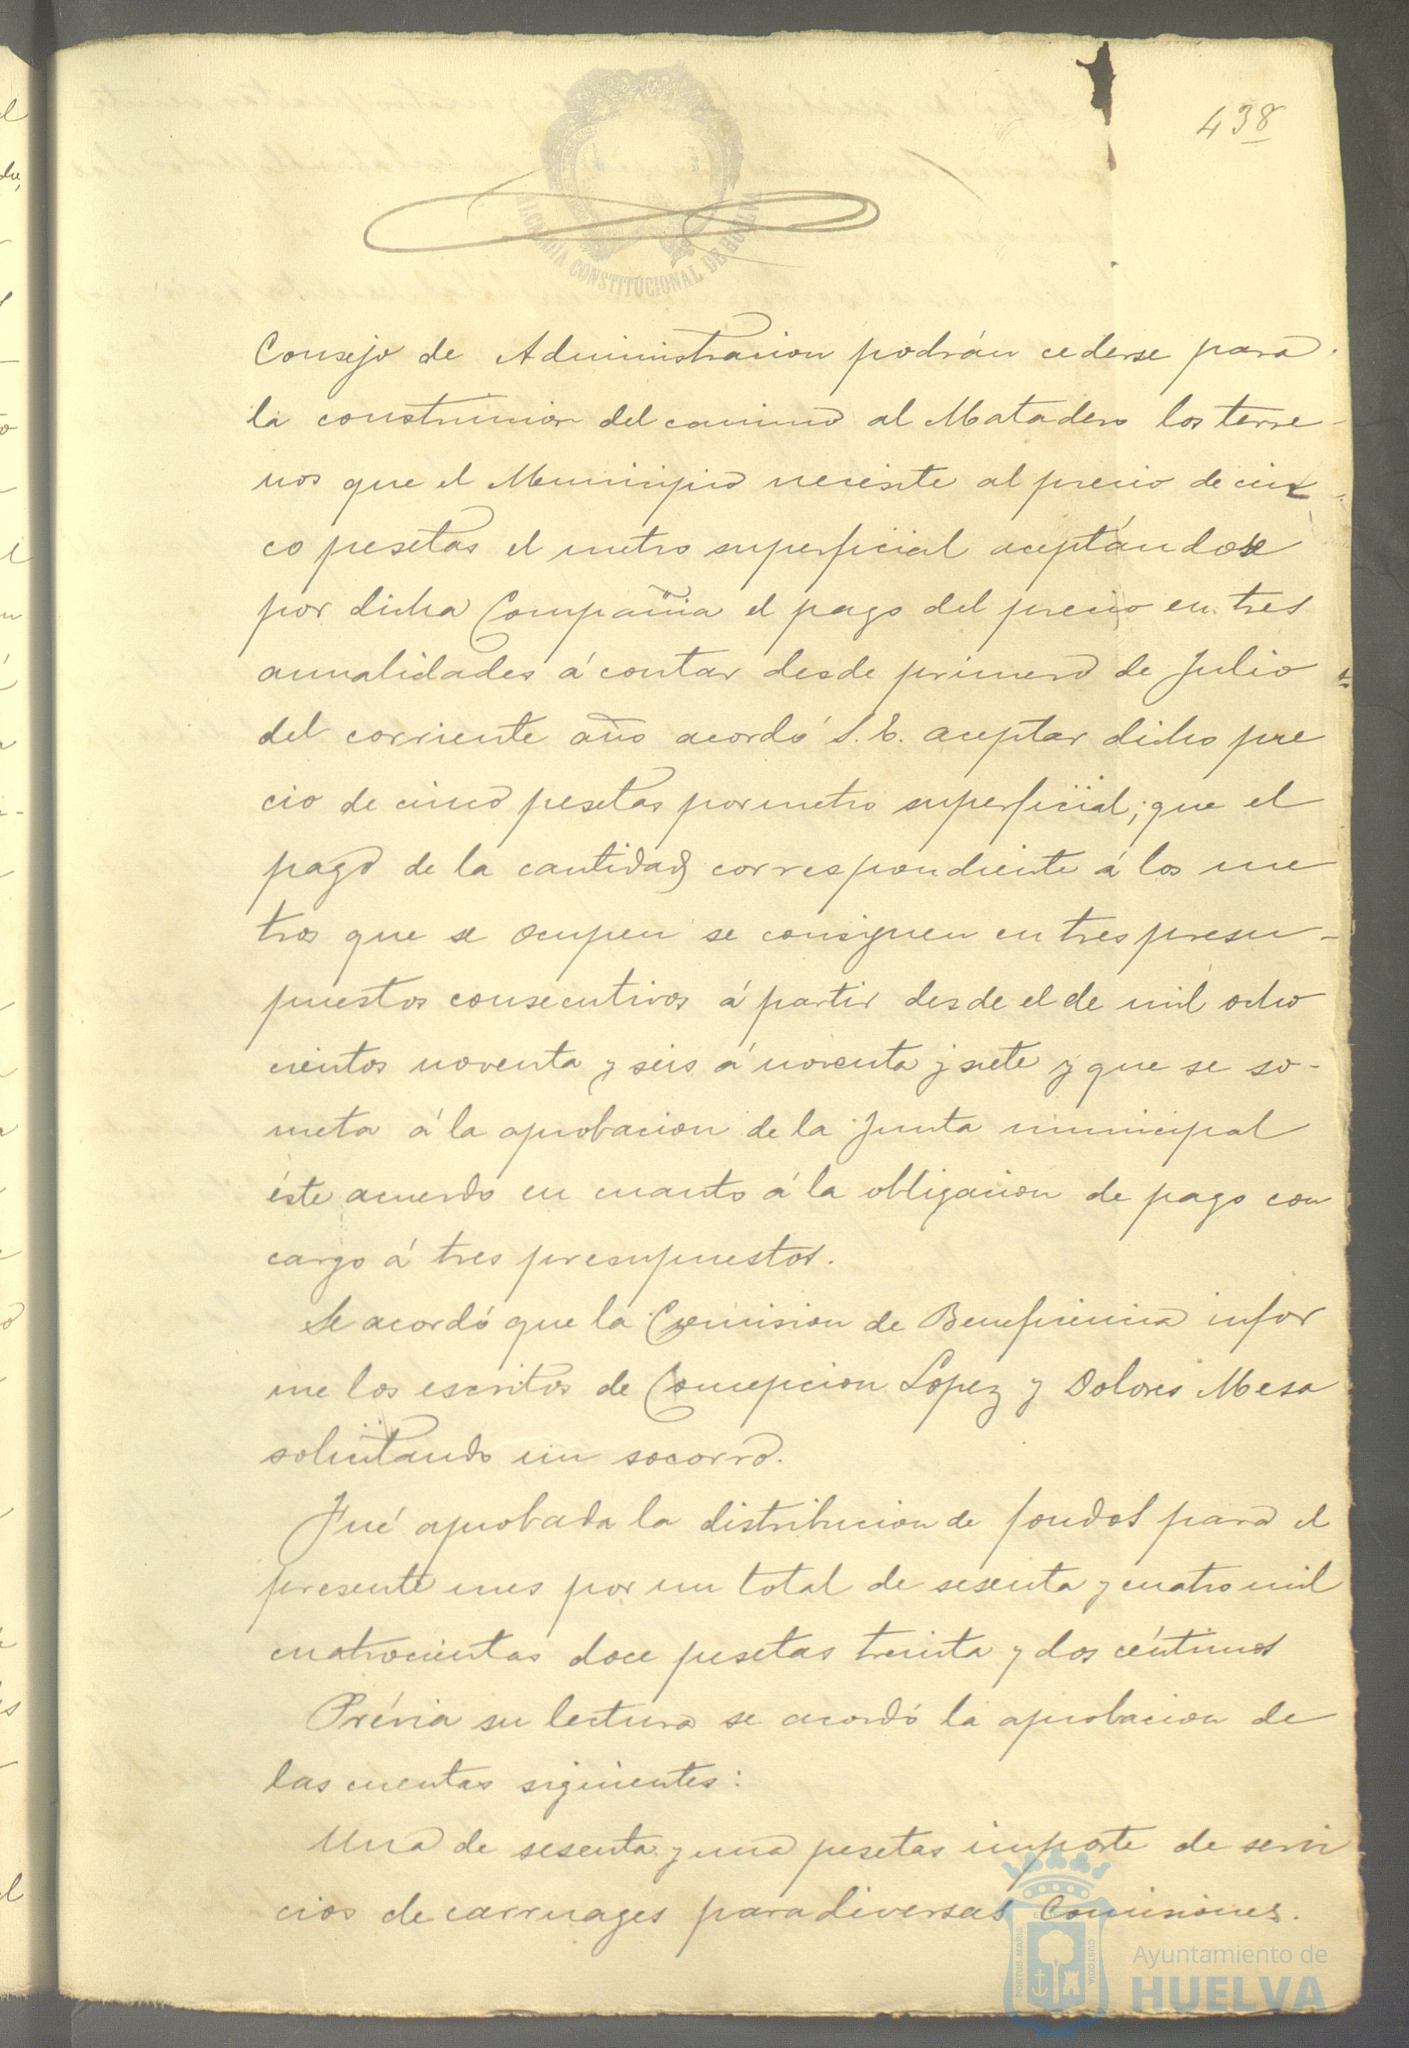 438
ALCALDIA CONSTITUCIONAL DE HUELVA
Consejo de Administracion podrán cederse para
la construccion del camino al Matadero los terre-
nos que el Municipio necesite al precio de cin-
co pesetas el metro superficial aceptándose
por dicha Compañia el pago del precio en tres
anualidades á contar desde primero de Julio
del corriente año acordó S. E. aceptar dicho pre
cio de cinco pesetas por metro superficial; que el
pago de la cantidad correspondiente á los me
tros que se ocupen se consignen en tres presu-
puestos consecutivos á partir desde el de mil ocho
cientos noventa y seis á noventa y siete y que se so-
meta á la aprobacion de la Junta municipal
éste acuerdo en cuanto á la obligacion de pago con
cargo á tres presupuestos.
Se acordó que la Comision de Beneficencia infor
me los escritos de Concepcion Lopez y Dolores Mesa
solicitando un socorro.
Fué aprobada la distribucion de fondos para el
presente mes por un total de sesenta y cuatro mil
cuatrocientas doce pesetas treinta y dos céntimos
Prévia su lectura se acordó la aprobacion de
las cuentas siguientes:
Una de sesenta y una pesetas importe de servi
cios de carruages para diversas Comisiones.
PORTUS MARIS
CUSTODIA
Ayuntamiento de
HUELVA